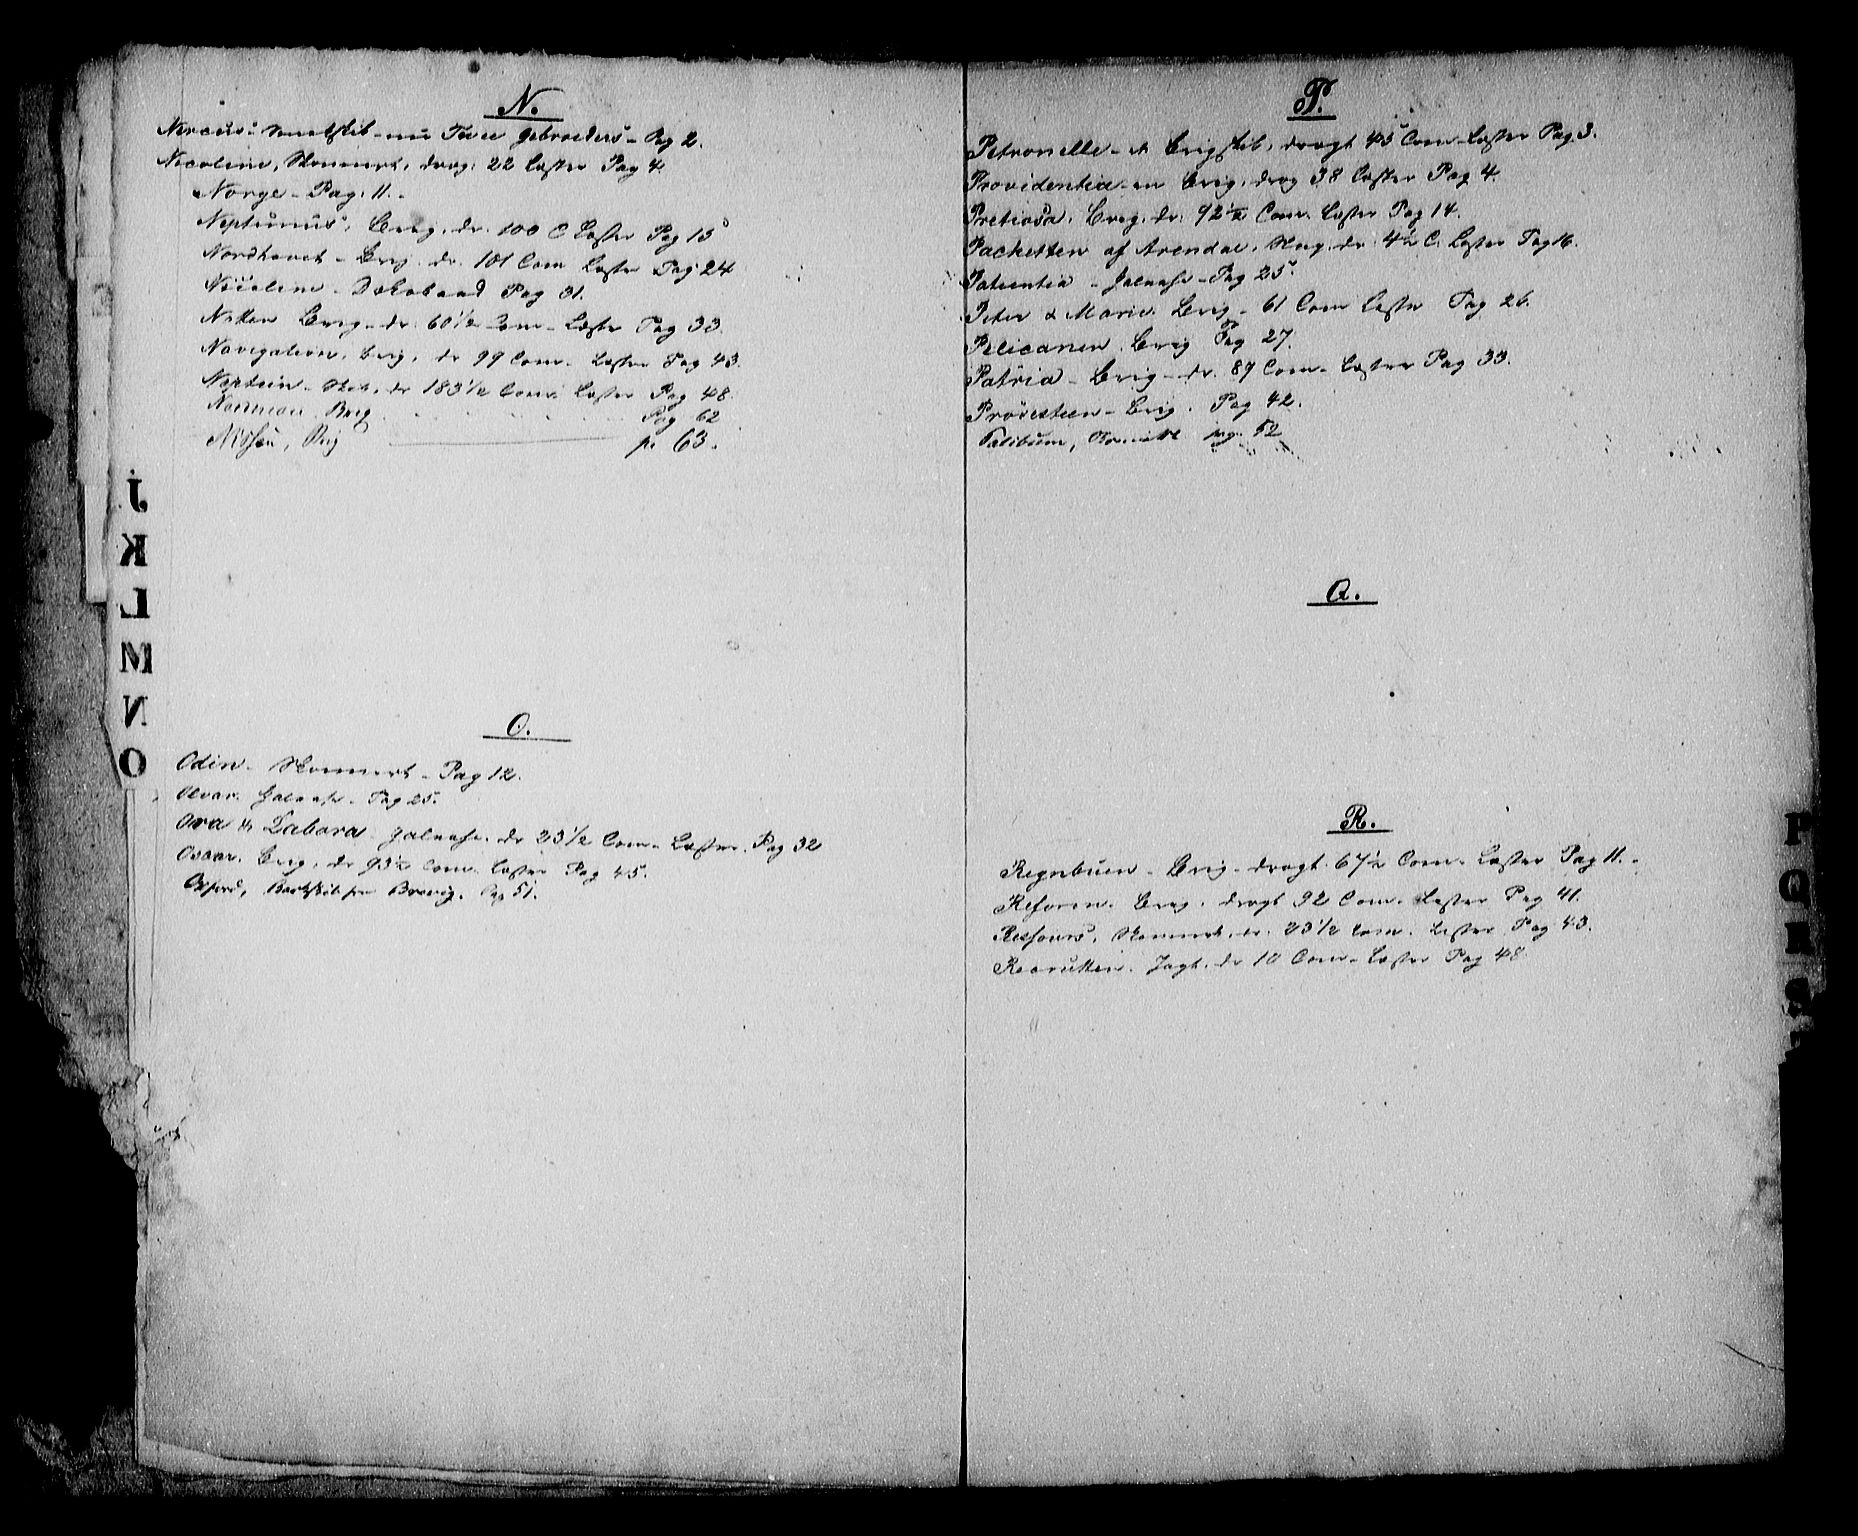 N.
Nereus - Smakskib - nu Twee gebroeders - Pag 2.
Nicoline, Skonnert, drag: 22 Læster Pag 4.
Norge - Pag: 11. -
Neptunus, Brig, dr. 100 C Læster Pag 15
Nordhavet - Brig. dr. 101 Com Læster Pag 24
Nicoline - Dæksbaad Pag 31.
Natten Brig - dr. 60 1/2 Com - Læster Pag 33.
Navigation, Brig, dr 99 Com - Læster Pag 43.
Neptun - Skib, dr 183 1/2 Com Læster Pag 48.
Norman Brig Pag 62
Nissen, Brig p. 63.
O.
Odin - Skonnert - Pag 12.
Olvar. Galease - Pag 25.
Ora & Labora - Galease. dr 23 1/2 Com - Læster. Pag 32
Oscar. Brig. dr 93 1/2 Com. Læster Pag 45.
Oxford, Barkskib fra Brevig. Pag 51.
P.
Petronelle - et Brigskib, dragt 45 Com - Læster Pag 3.
Providentia - en Brig, drag 38 Læster Pag 4.
Pretiosa. Brig. dr. 92 1/2 Com. Læster Pag 14.
Packetten af Arendal. Slup. dr. 4 1/2 C. Læster Pag 16.
Patientia - Galease - Pag 25.
Peter & Marie. Brig - 61 Com Læster Pag 26.
Pelicanen. Brig Pag 27.
Patria - Brig - dr. 89 Com - Læster Pag 33.
Prövesteen - Brig. Pag 42.
pag. 52
Q.
R.
Regnbuen - Brig - dragt. 67 1/2 Com. Læster Pag 11. -
Reform. Brig. dragt 92 Com. Læster Pag 41.
Ressours, Skonnert, dr. 23 1/2 Com. Læster Pag 43.
Recrutten. Jagt. dr 10 Com - Læster Pag 48
J
K
L
M
N
O
P
Q
R
S